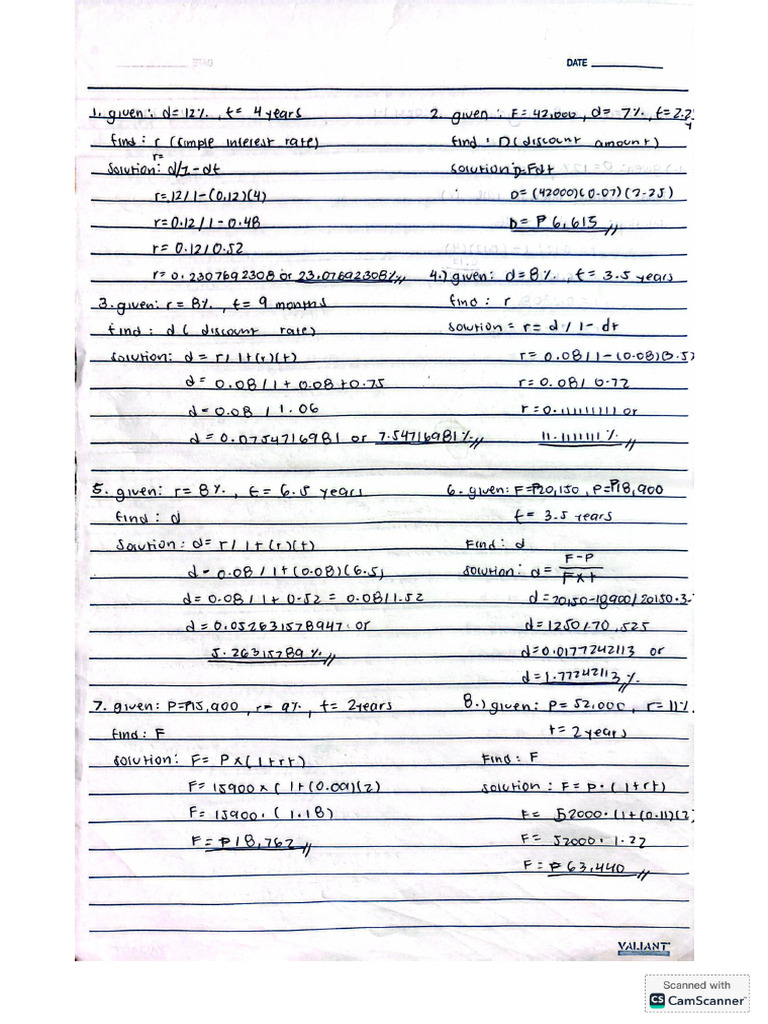 DATE
1. given: d=12%, t= 4 years
find: r (simple interest rate)
r=
Solution: d/1-dt
r=12/1-(0.12)(4)
r=0.12/1-0.48
r=0.12/0.52
r=0.2307692308 or 23.07692308%
2. given: F=42,000, d=7%, t=2.2
find: D(discount amount)
solution: D=Fdt
D=(42000)(0.07)(2.25)
D= ₱6,615
3. given: r=8%, t=9 months
find: d (discount rate)
solution: d=r/1+(r)(t)
d=0.08/1+0.08+0.75
d=0.08/1.06
d=0.0754716981 or 7.54716981%
4.) given: d=8%, t= 3.5 years
find: r
solution = r=d/1-dt
r=0.08/1-(0.08)(3.5)
r=0.08/0.72
r=0.11111111 or
11.111111%
5. given: r=8%, t=6.5 years
find: d
solution: d=r/1+(r)(t)
d=0.08/1+(0.08)(6.5)
d=0.08/1+0.52=0.08/1.52
d=0.052631578947 or
5.26315789%
6. given: F=₱20,150, P=₱18,900
t=3.5 years
Find: d
solution: d= F-P
F×t
d=20150-18900/20150.3.
d=1250/70,525
d=0.0177242113 or
d=1.77242113%
7. given: P=₱15,900, r=9%, t=2years
find: F
solution: F=P×(1+rt)
F=15900×(1+(0.09)(2)
F=15900.(1.18)
F=₱18,762
8.) given: P=52,000, r=11%
t=2years
Find: F
solution: F=P.(1+rt)
F=52000.(1+(0.11)(2)
F=52000.1.22
F=₱63,440
VALIANT
Scanned with
CS CamScanner